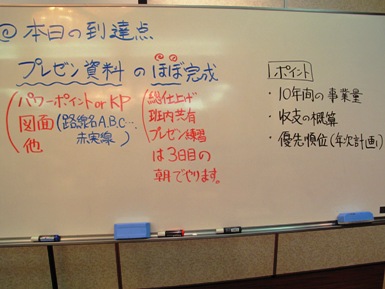 @本日の到達点
プレゼン資料のほぼ完成
パワーポイント or KP
図面(路線名A,B,C…
赤実線)
他
総仕上げ
班内共有
プレゼン練習
は3日目の
朝でやります。
ポイント
・10年間の事業量
・収支の概算
・優先順位(年次計画)